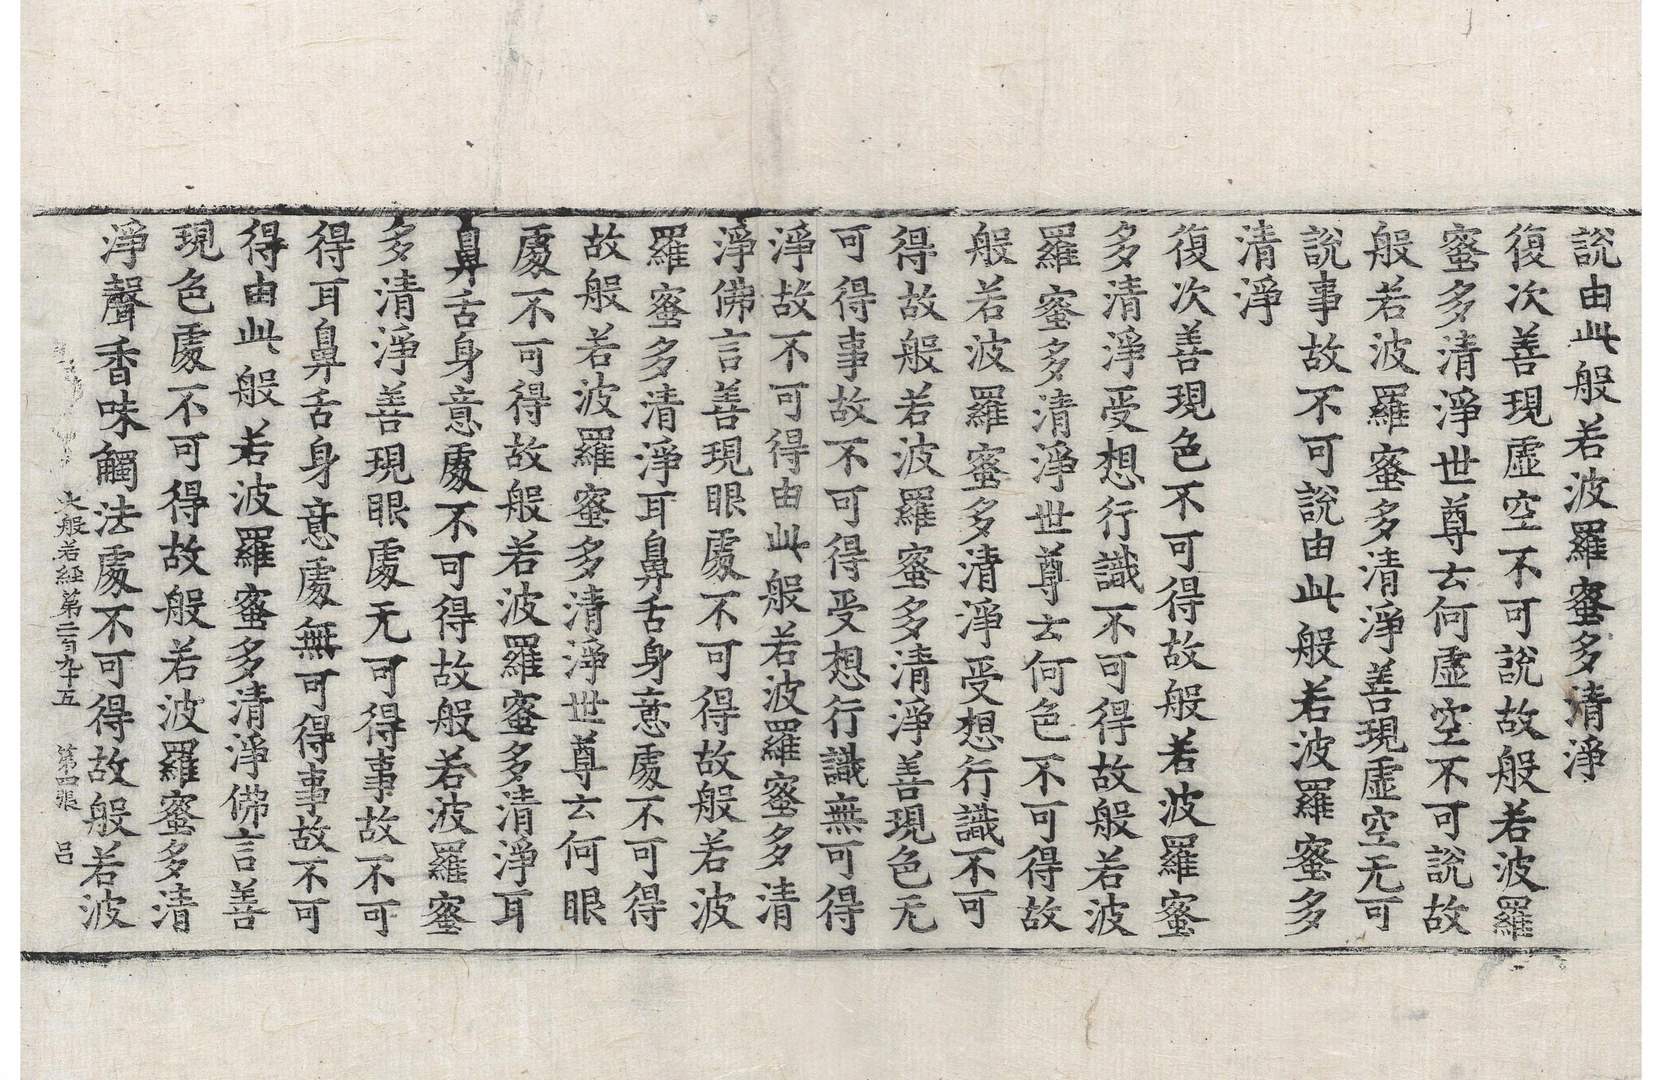 說由此般若波羅蜜多清淨
復次善現虛空不可說故般若波羅
蜜多清淨世尊云何虛空不可說故
般若波羅蜜多清淨善現虛空无可
說事故不可說由此般若波羅蜜多
清淨
復次善現色不可得故般若波羅蜜
多清淨受想行識不可得故般若波
羅蜜多清淨世尊云何色不可得故
般若波羅蜜多清淨受想行識不可
得故般若波羅蜜多清淨善現色无
可得事故不可得受想行識無可得
淨故不可得由此般若波羅蜜多清
淨佛言善現眼處不可得故般若波
羅蜜多清淨耳鼻舌身意處不可得
故般若波羅蜜多清淨世尊云何眼
處不可得故般若波羅蜜多清淨耳
鼻舌身意處不可得故般若波羅蜜
多清淨善現眼處无可得事故不可
得耳鼻舌身意處無可得事故不可
得由此般若波羅蜜多清淨佛言善
現色處不可得故般若波羅蜜多清
淨聲香味觸法處不可得故般若波
大般若經第二百九十五 第四張 呂